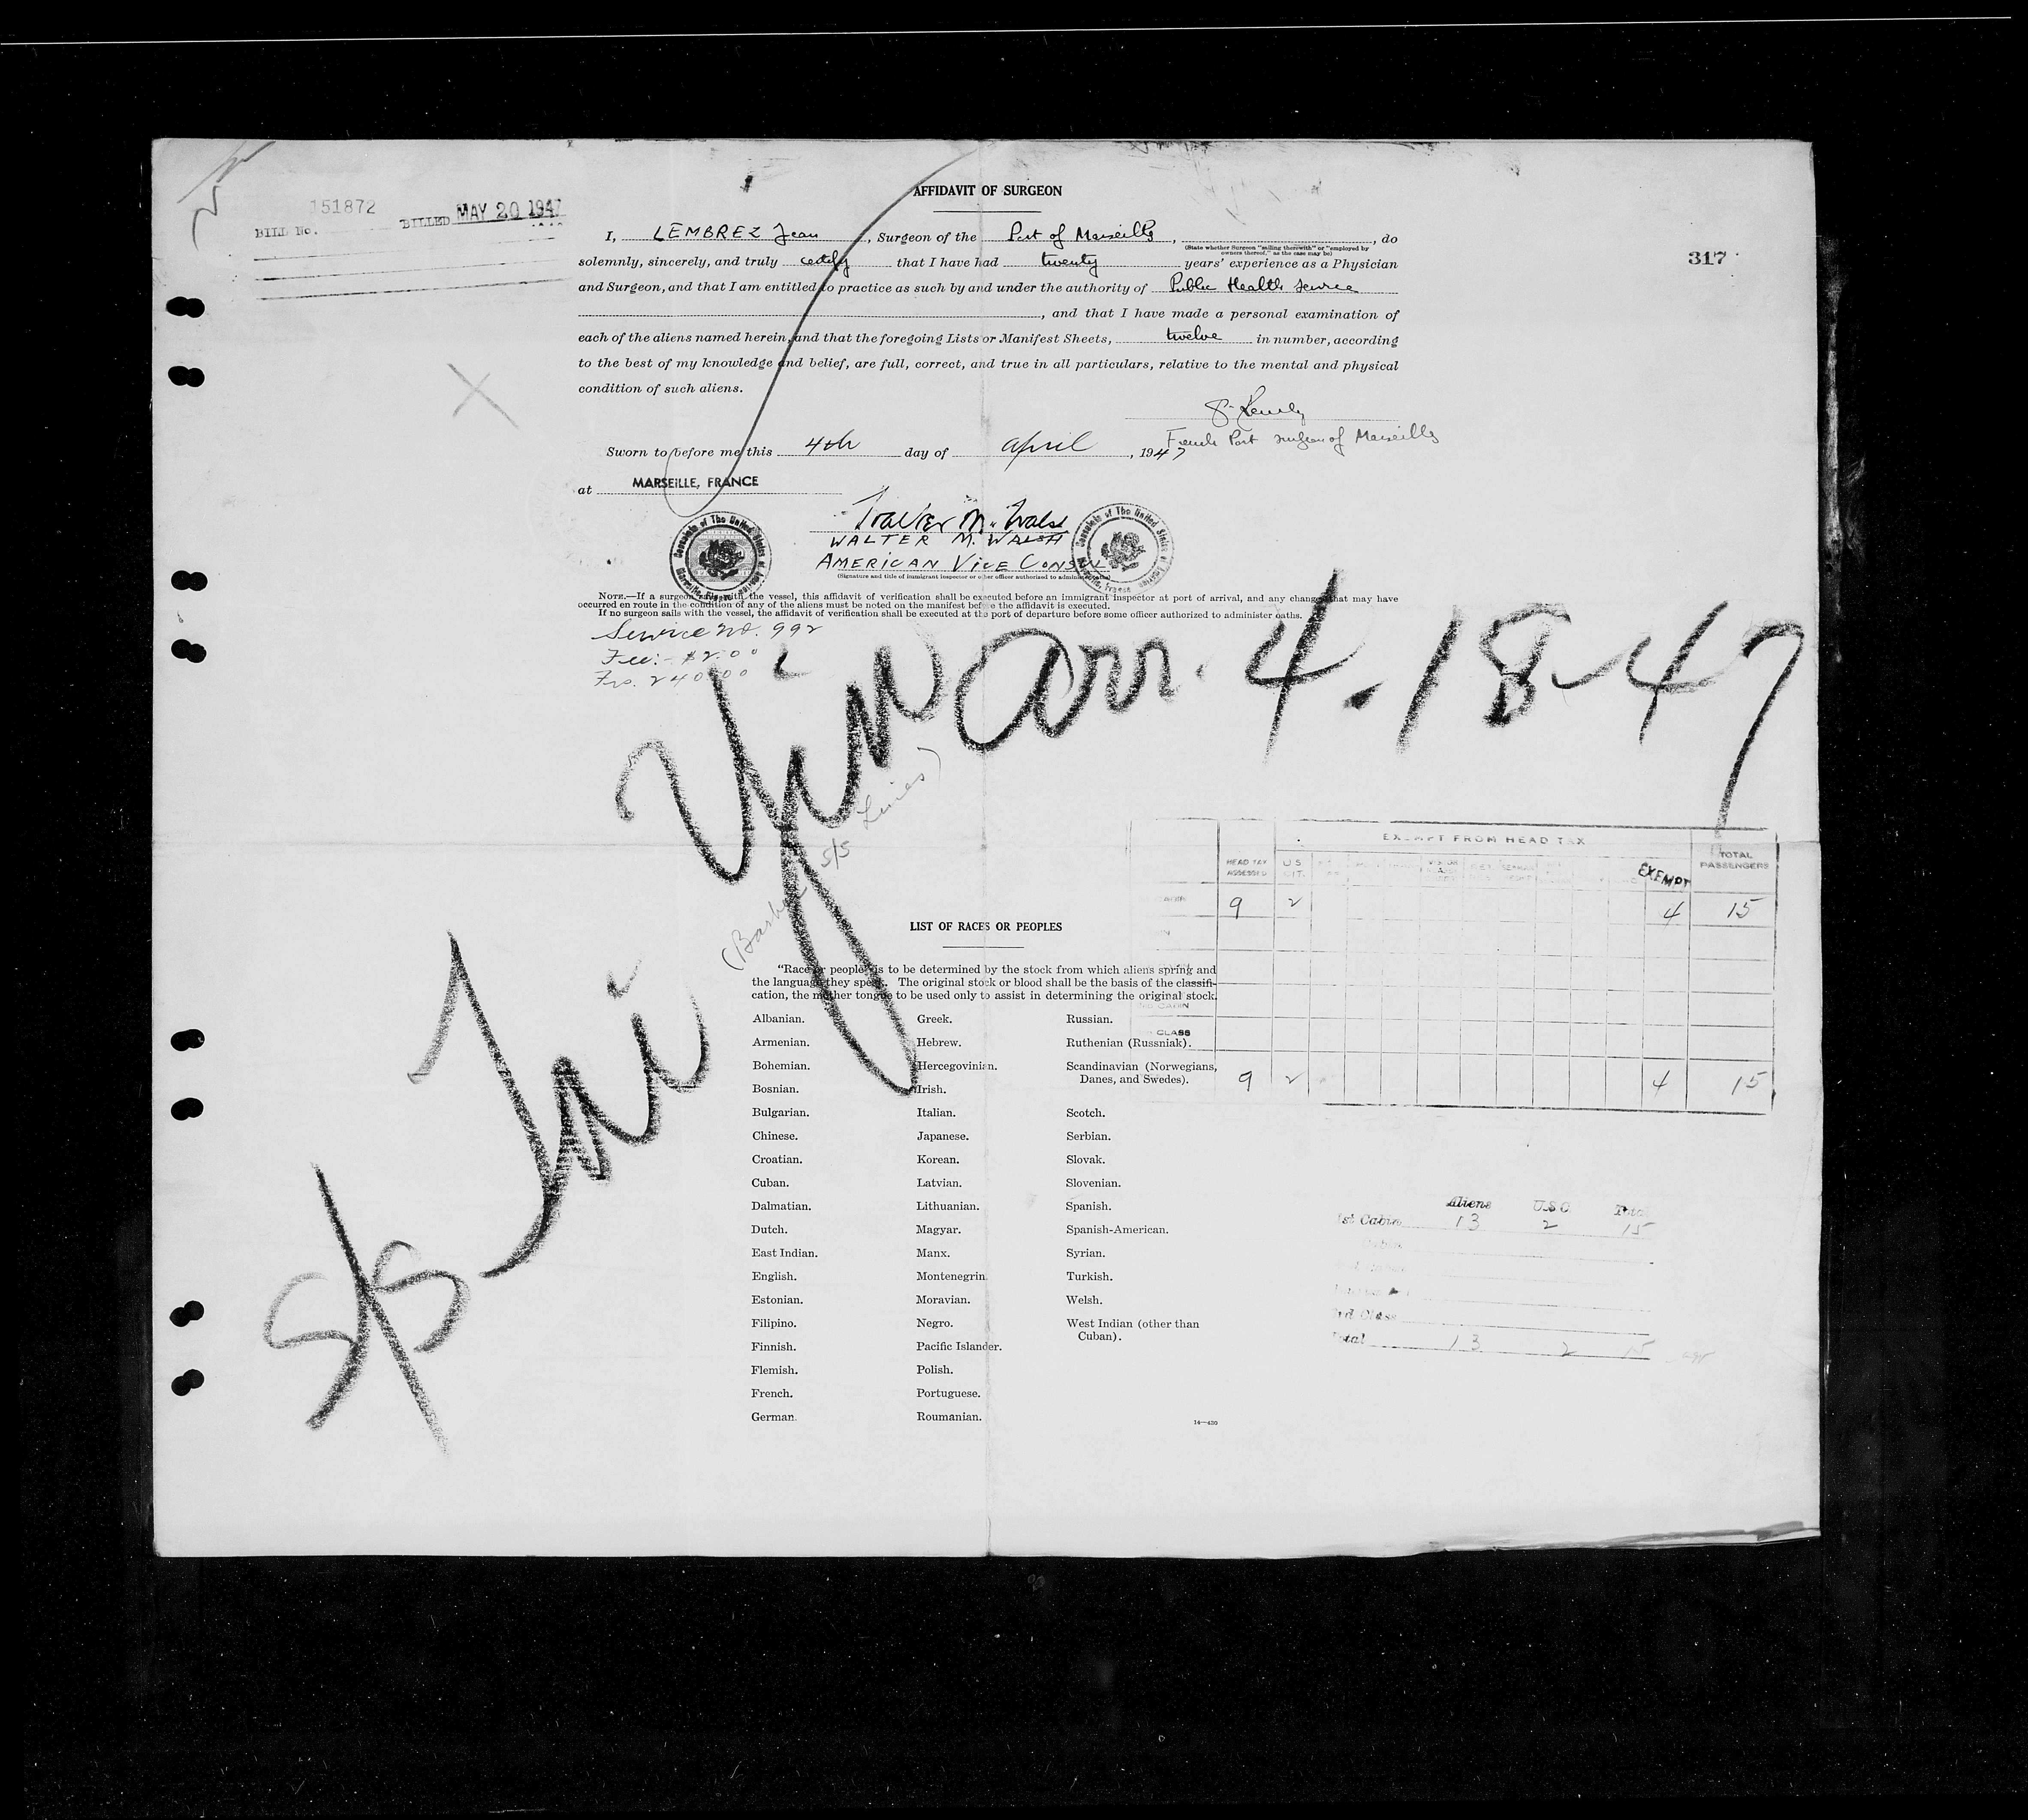 AFFIDAVIT OF SURGEON
151872
BILL No. BILLED MAY 20 1947
317
I, LEMBREZ Jean, Surgeon of the Port of Marseille, , do
(State whether Surgeon "sailing therewith" or "employed by
owners thereof," as the case may be)
solemnly, sincerely, and truly certify that I have had twenty years' experience as a Physician
and Surgeon, and that I am entitled to practice as such by and under the authority of Public Health Service
, and that I have made a personal examination of
each of the aliens named herein, and that the foregoing Lists or Manifest Sheets, twelve in number, according
to the best of my knowledge and belief, are full, correct, and true in all particulars, relative to the mental and physical
condition of such aliens.
French Port surgeon of Marseille
Sworn to before me this 4th day of April, 1947
at MARSEILLE, FRANCE
Walter M. Walsh
WALTER M. WALSH
AMERICAN VICE CONSUL
(Signature and title of immigrant inspector or other officer authorized to administer oaths)
Consulate of The United States of America
Marseille, France
Consulate of The United States of America
Marseille, France
NOTE.—If a surgeon sails with the vessel, this affidavit of verification shall be executed before an immigrant inspector at port of arrival, and any changes that may have
occurred en route in the condition of any of the aliens must be noted on the manifest before the affidavit is executed.
If no surgeon sails with the vessel, the affidavit of verification shall be executed at the port of departure before some officer authorized to administer oaths.
Service No. 992
Fee: $2.00
Frs. 240.00
arr. 4.18-47
S/S
S/S Lines)
EXEMPT FROM HEAD TAX
HEAD TAX ASSESSED U S CIT. EXEMPT TOTAL PASSENGERS
9 2 4 15
CABIN
CLASS
9 2 4 15
LIST OF RACES OR PEOPLES
"Race or people" is to be determined by the stock from which aliens spring and
the language they speak. The original stock or blood shall be the basis of the classifi-
cation, the mother tongue to be used only to assist in determining the original stock.
Albanian.
Armenian.
Bohemian.
Bosnian.
Bulgarian.
Chinese.
Croatian.
Cuban.
Dalmatian.
Dutch.
East Indian.
English.
Estonian.
Filipino.
Finnish.
Flemish.
French.
German.
Greek.
Hebrew.
Hercegovinian.
Irish.
Italian.
Japanese.
Korean.
Latvian.
Lithuanian.
Magyar.
Manx.
Montenegrin.
Moravian.
Negro.
Pacific Islander.
Polish.
Portuguese.
Roumanian.
Russian.
Ruthenian (Russniak).
Scandinavian (Norwegians,
Danes, and Swedes).
Scotch.
Serbian.
Slovak.
Slovenian.
Spanish.
Spanish-American.
Syrian.
Turkish.
Welsh.
West Indian (other than
Cuban).
14—430
Aliens U.S.C. Total
1st Cabin 13 2 15
3rd Class
Total 13 2 15